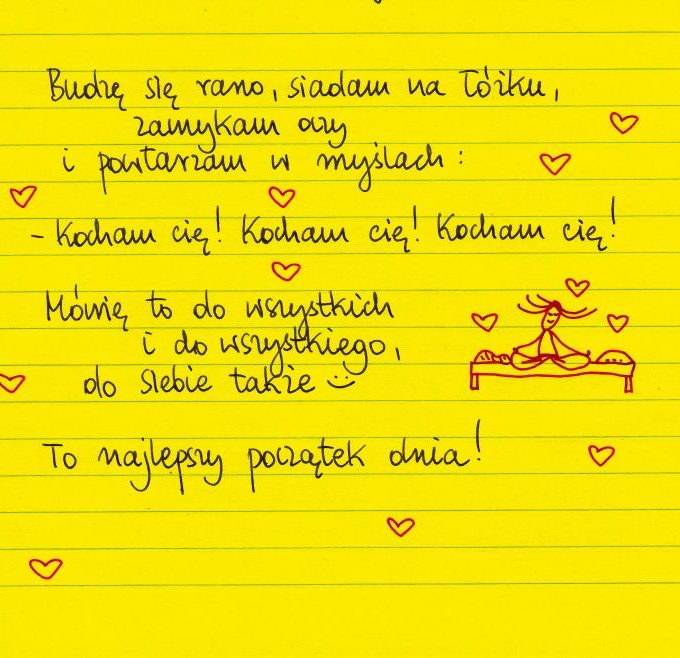 Budzę się rano, siadam na łóżku,
zamykam oczy
i powtarzam w myślach:
- Kocham cię! Kocham cię! Kocham cię!
Mówię to do wszystkich
i do wszystkiego,
do siebie także :)
To najlepszy początek dnia!